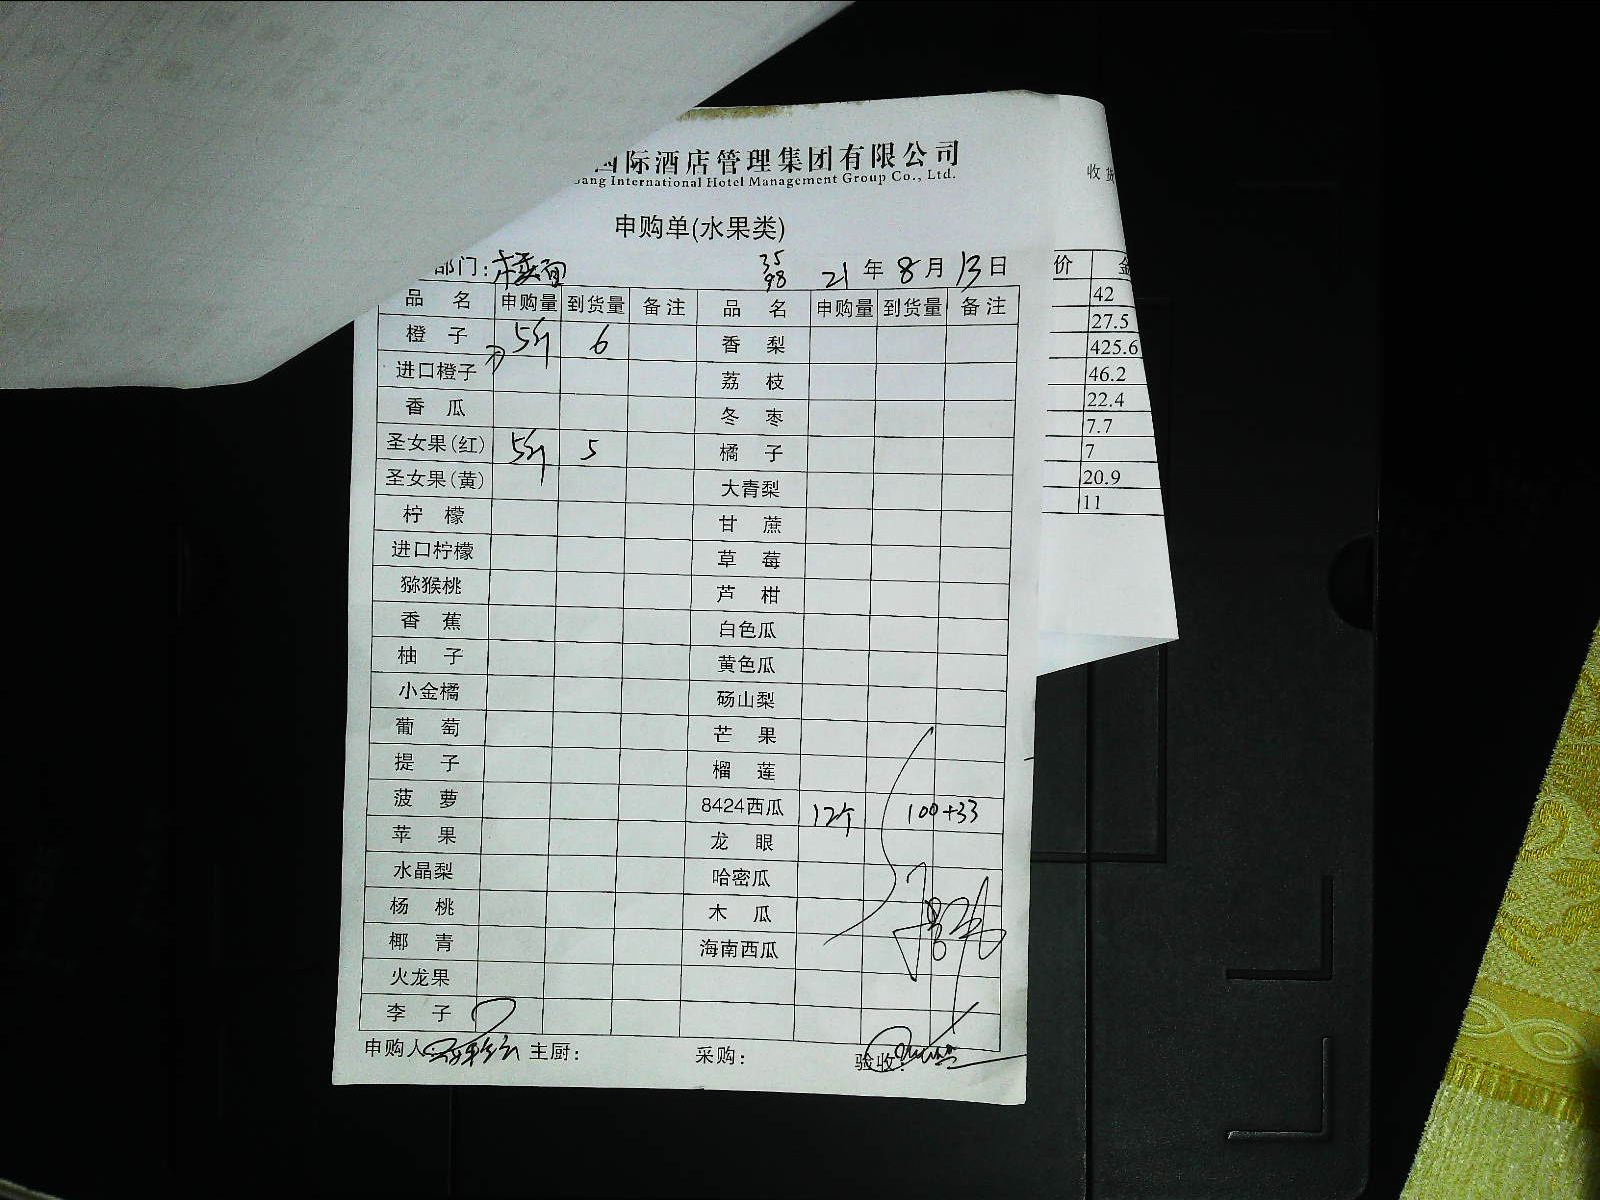 国际酒店管理集团有限公司
gang International Hotel Management Group Co., Ltd.
收货
申购单(水果类)
部门: 楼面 35 98 21 年 8 月 13 日
品 名 申购量 到货量 备注 品 名 申购量 到货量 备注
橙 子 5斤 6 香 梨
进口橙子 荔 枝
香 瓜 冬 枣
圣女果(红) 5斤 5 橘 子
圣女果(黄) 大青梨
柠 檬 甘 蔗
进口柠檬 草 莓
猕猴桃 芦 柑
香 蕉 白色瓜
柚 子 黄色瓜
小金橘 砀山梨
葡 萄 芒 果
提 子 榴 莲
菠 萝 8424西瓜 12个 100+33
苹 果 龙 眼
水晶梨 哈密瓜
杨 桃 木 瓜
椰 青 海南西瓜
火龙果
李 子
申购人: 主厨: 采购: 验收:
价 金
42
27.5
425.6
46.2
22.4
7.7
7
20.9
11